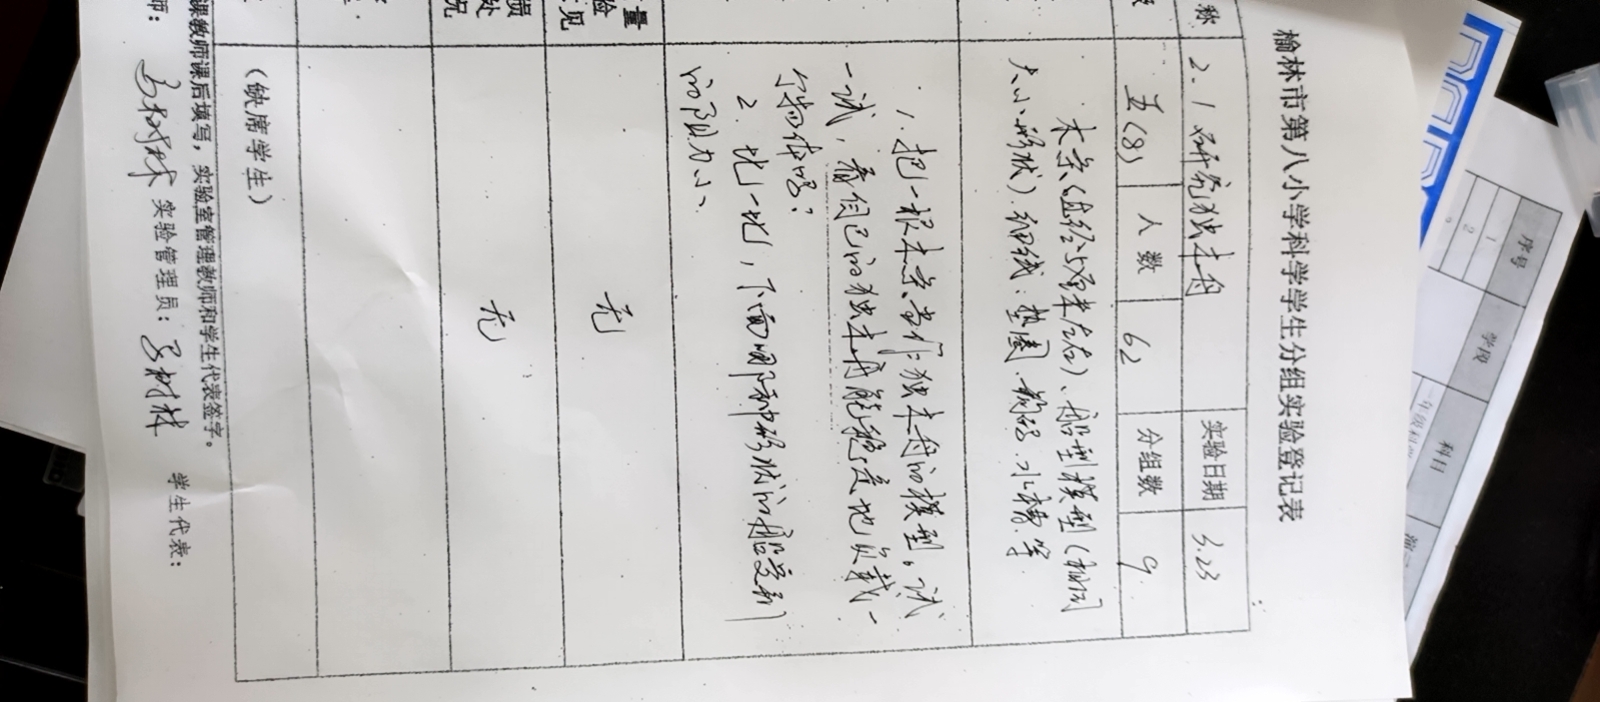 榆林市第八小学科学学生分组实验登记表
称 2.1研究独木舟 实验日期 3.23
五(8) 人数 62 分组数 9
木条(直径5厘米左右)、船型模型(相同
大小形状)、细线、垫圈、钩码、水槽等
1.把一根木条当作独木舟的模型。试
一试,看自己的独木舟能稳定地负载一
个物体吗?
2.比一比,下面哪种形状的船受到
的阻力小、
量
验
见
无
损
处
况
无
(缺席学生)
课教师课后填写,实验室管理教师和学生代表签字。
师: 实验管理员: 学生代表:
序号 学段 科目
1 一年级科学
2